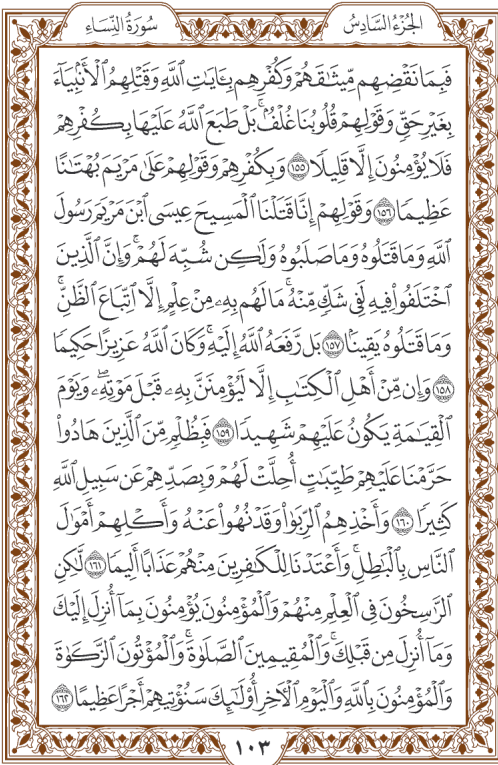 الجُزْءُ السَّادِسُ سُورَةُ النِّسَاءِ
فَبِمَا نَقْضِهِم مِّيثَٰقَهُمْ وَكُفْرِهِم بِـَٔايَٰتِ ٱللَّهِ وَقَتْلِهِمُ ٱلْأَنۢبِيَآءَ
بِغَيْرِ حَقٍّ وَقَوْلِهِمْ قُلُوبُنَا غُلْفٌۢ ۚ بَلْ طَبَعَ ٱللَّهُ عَلَيْهَا بِكُفْرِهِمْ
فَلَا يُؤْمِنُونَ إِلَّا قَلِيلًا ١٥٥ وَبِكُفْرِهِمْ وَقَوْلِهِمْ عَلَىٰ مَرْيَمَ بُهْتَٰنًا
عَظِيمًا ١٥٦ وَقَوْلِهِمْ إِنَّا قَتَلْنَا ٱلْمَسِيحَ عِيسَى ٱبْنَ مَرْيَمَ رَسُولَ
ٱللَّهِ وَمَا قَتَلُوهُ وَمَا صَلَبُوهُ وَلَٰكِن شُبِّهَ لَهُمْ ۚ وَإِنَّ ٱلَّذِينَ
ٱخْتَلَفُوا۟ فِيهِ لَفِى شَكٍّ مِّنْهُ ۚ مَا لَهُم بِهِۦ مِنْ عِلْمٍ إِلَّا ٱتِّبَاعَ ٱلظَّنِّ ۚ
وَمَا قَتَلُوهُ يَقِينًۢا ١٥٧ بَل رَّفَعَهُ ٱللَّهُ إِلَيْهِ ۚ وَكَانَ ٱللَّهُ عَزِيزًا حَكِيمًا
١٥٨ وَإِن مِّنْ أَهْلِ ٱلْكِتَٰبِ إِلَّا لَيُؤْمِنَنَّ بِهِۦ قَبْلَ مَوْتِهِۦ ۖ وَيَوْمَ
ٱلْقِيَٰمَةِ يَكُونُ عَلَيْهِمْ شَهِيدًا ١٥٩ فَبِظُلْمٍ مِّنَ ٱلَّذِينَ هَادُوا۟
حَرَّمْنَا عَلَيْهِمْ طَيِّبَٰتٍ أُحِلَّتْ لَهُمْ وَبِصَدِّهِمْ عَن سَبِيلِ ٱللَّهِ
كَثِيرًا ١٦٠ وَأَخْذِهِمُ ٱلرِّبَوٰا۟ وَقَدْ نُهُوا۟ عَنْهُ وَأَكْلِهِمْ أَمْوَٰلَ
ٱلنَّاسِ بِٱلْبَٰطِلِ ۚ وَأَعْتَدْنَا لِلْكَٰفِرِينَ مِنْهُمْ عَذَابًا أَلِيمًا ١٦١ لَّٰكِنِ
ٱلرَّٰسِخُونَ فِى ٱلْعِلْمِ مِنْهُمْ وَٱلْمُؤْمِنُونَ يُؤْمِنُونَ بِمَآ أُنزِلَ إِلَيْكَ
وَمَآ أُنزِلَ مِن قَبْلِكَ ۚ وَٱلْمُقِيمِينَ ٱلصَّلَوٰةَ ۚ وَٱلْمُؤْتُونَ ٱلزَّكَوٰةَ
وَٱلْمُؤْمِنُونَ بِٱللَّهِ وَٱلْيَوْمِ ٱلْءَاخِرِ أُو۟لَٰٓئِكَ سَنُؤْتِيهِمْ أَجْرًا عَظِيمًا ١٦٢
١٠٣